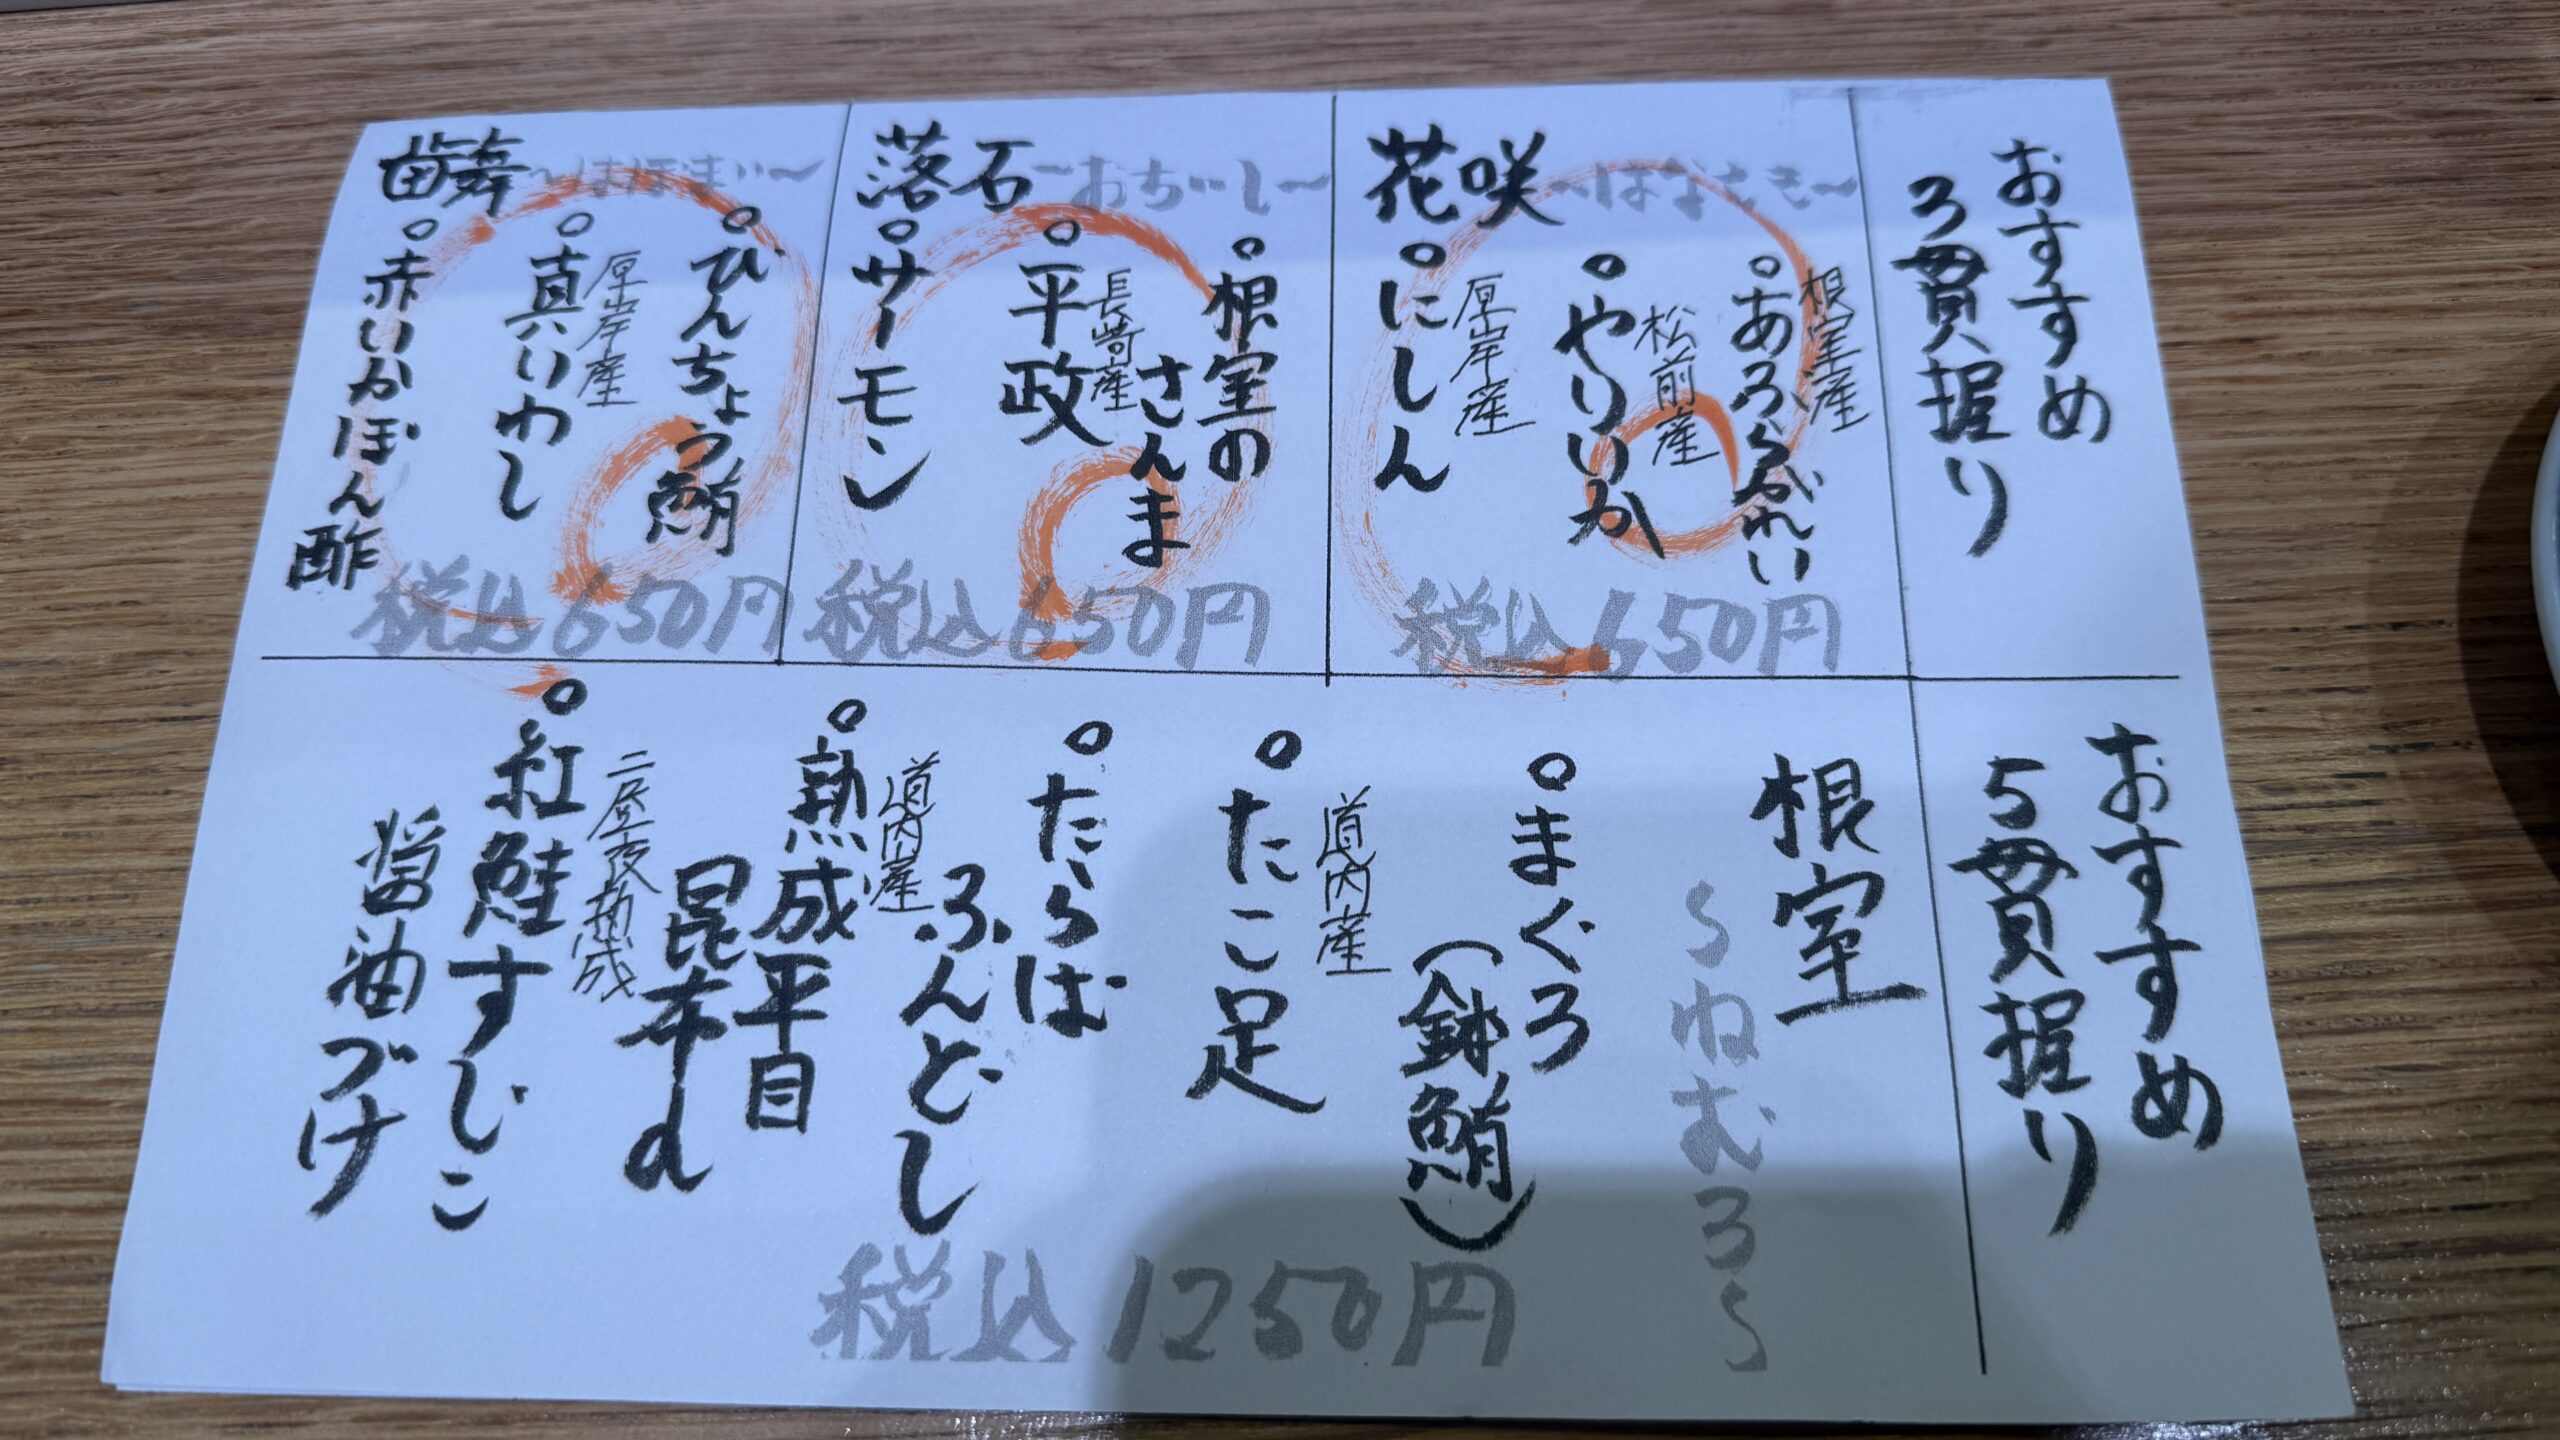 おすすめ
3貫握り
花咲
〜はなさき〜
根室産
○あぶらがれい
松前産
○やりいか
厚岸産
○にしん
税込650円
落石
〜おちいし〜
○根室の
さんま
長崎産
○平政
○サーモン
税込650円
歯舞
〜はぼまい〜
○びんちょう鮪
厚岸産
○真いわし
○赤いかぽん酢
税込650円
おすすめ
5貫握り
根室
〜ねむろ〜
○まぐろ
(鉢鮪)
道内産
○たこ足
○たらば
ふんどし
道内産
○熟成平目
昆布〆
二昼夜熟成
○紅鮭すじこ
醤油づけ
税込1250円